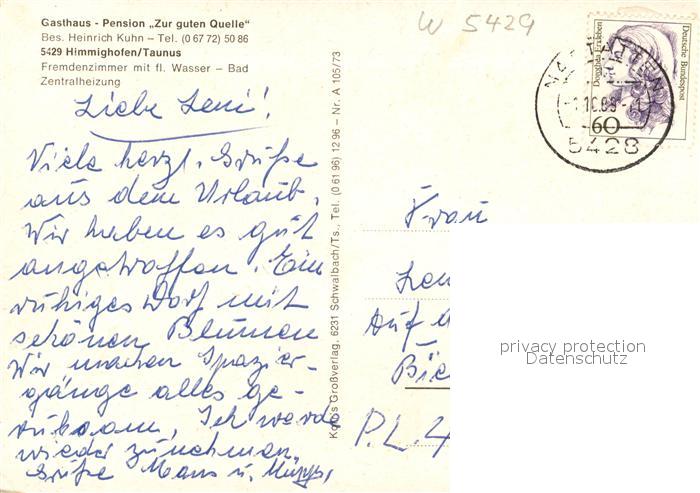 Gasthaus - Pension „Zur guten Quelle“
Bes. Heinrich Kuhn – Tel. (0 67 72) 50 86
5429 Himmighofen/Taunus
Fremdenzimmer mit fl. Wasser – Bad
Zentralheizung
W 5429
Liebe Leni!
Viele herzl. Grüße
aus dem Urlaub.
Wir haben es gut
angetroffen. Ein
ruhiges Dorf mit
schönen Blumen
Wir machen Spazier-
gänge alles ge-
ruhsam. Ich werde
wieder zunehmen.
Grüße Mans u.
Korr's Großverlag, 6231 Schwalbach/Ts., Tel. (0 61 96) 12 96 – Nr. A 105/73
Deutsche Bundespost
Dorothea Erxleben
60
NASTÄTTEN
5428
Frau
Len
Auf d
Bie
P.L.4
privacy protection
Datenschutz